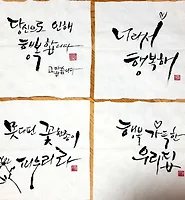 당신으로 인해
행복합니다
고맙습니다
너라서
행복해
못다핀 꽃한송이
피우리라
행복 가득한
우리집